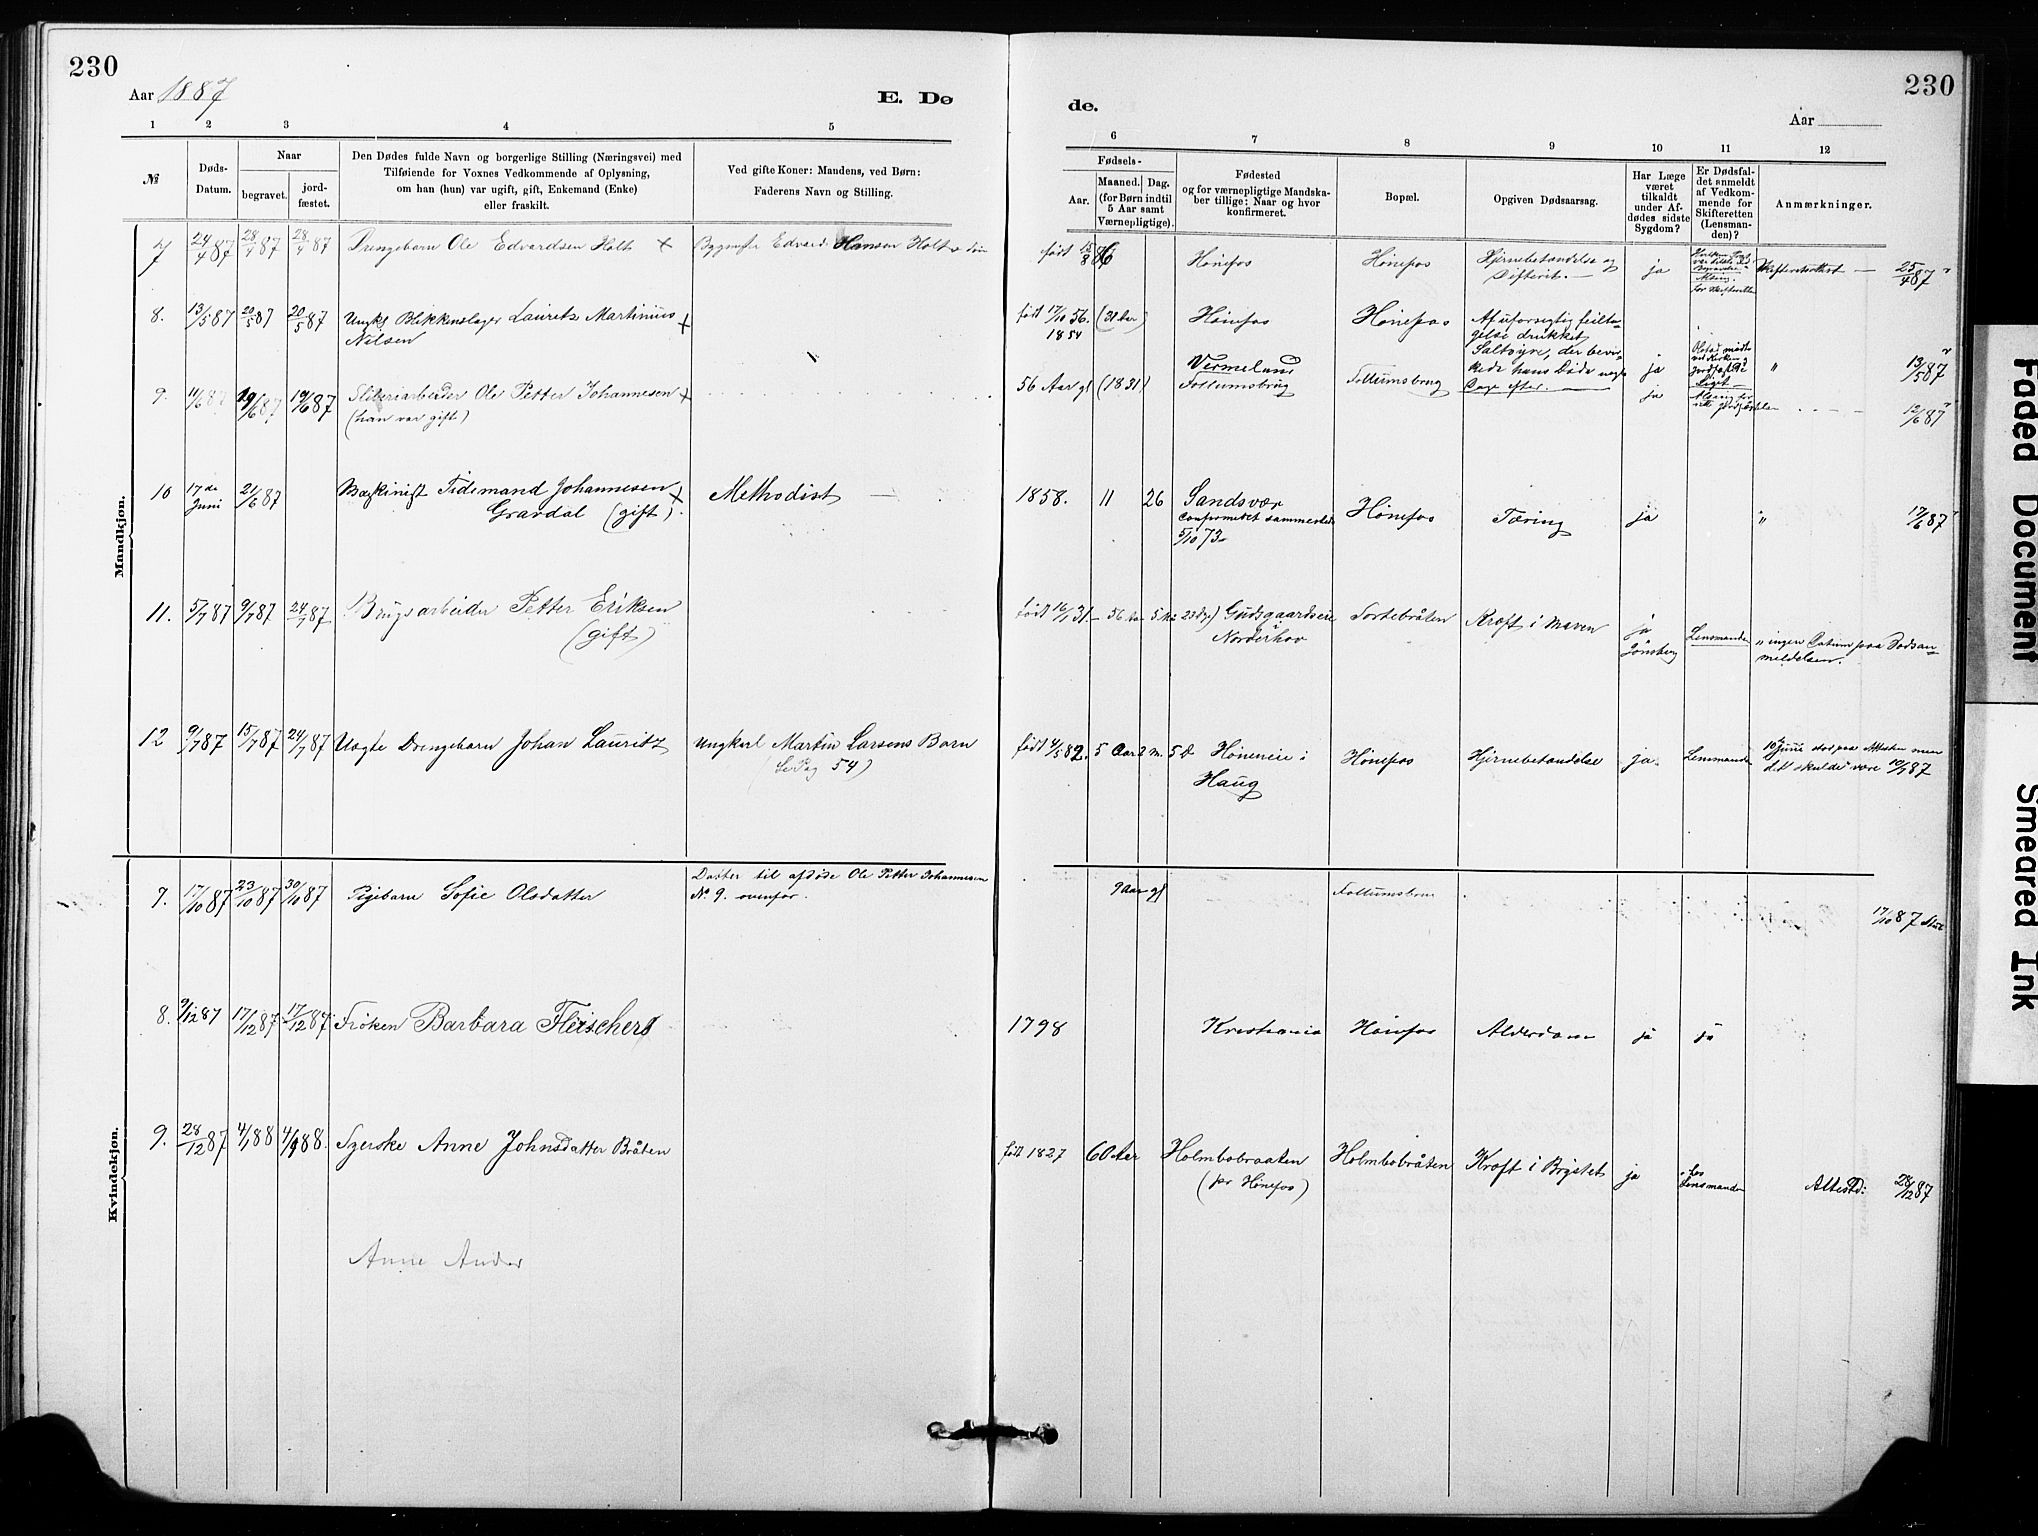 230
Aar 1887
E. Dø
1 2 3 4 5
№
Døds-Datum.
Naar
begravet.
jord-fæstet.
Den Dødes fulde Navn og borgerlige Stilling (Næringsvei) med
Tilføiende for Voxnes Vedkommende af Oplysning,
om han (hun) var ugift, gift, Enkemand (Enke)
eller fraskilt.
Ved gifte Koner: Mandens, ved Børn:
Faderens Navn og Stilling.
Mandkjøn.
7 24/4 87 28/4 87 28/4 87 Drengebarn Ole Edvardsen Holt + Bygmester Edvard Hansen Holts
8. 13/5 87 20/5 87 20/5 87 Ungk. Blikkenslager Lauritz Martinius +
Nilsen
9. 11/6 87 19/6 87 19/6 87 Sliberiarbeider Ole Petter Johannesen +
(han var gift)
10 17de Juni 21/6 87 Maskinist Tidemand Johannesen + Methodist
Gravdal (gift).
11. 5/7 87 9/7 87 24/7 87 Brugsarbeider Petter Eriksen
(gift)
12 9/7 87 15/7 87 24/7 87 Uægte Drengebarn Johan Lauritz Ungkarl Martin Larsens Barn
(Se Pag 54)
Kvindekjøn.
7. 17/10 87 23/10 87 30/10 87 Pigebarn Sofie Olsdatter Datter til afdøde Ole Petter Johannesen
No 9. ovenfor.
8. 9/12 87 17/12 87 17/12 87 Frøken Barbara Fleischer
9. 28/12 87 4/1 88 4/1 88. Anne Johnsdatter Bråten
Anne Ander
230
de.
Aar
6 7 8 9 10 11 12
Fødsels-
Aar. Maaned. Dag.
(for Børn indtil
5 Aar samt
Værnepligtige).
Fødested
og for værnepligtige Mandska-
ber tillige: Naar og hvor
konfirmeret.
Bopæl.
Opgiven Dødsaarsag.
Har Læge
været
tilkaldt
under Af-
dødes sidste
Sygdom?
Er Dødsfal-
det anmeldt
af Vedkom-
mende for
Skifteretten
(Lensman-
den)?
Anmærkninger.
født 15/8 Hønefos Hønefos Hjernebetændelse og
Difterit. ja Skifteretsattest 25/4 87
født 17/10 56. (31 Aar) Hønefos Hønefos Af uforsigtig feilta-
1854 gelse drukket
Saltsyre, der bevir-
kede hans Døde
Dage efter. ja " 13/5 87
56 Aar gl (1831) Vermeland
Follumsbrug Follumsbrug ja 12/6 87
1858. 11 26 Sandsvær
Confirmeret sammesteds
5/10 73 Hønefos Tæring ja " 17/6 87
født 16/1 31 56 Aar 5 M. 23 dg.) Gudsgaardseie
Norderhov Tortebråten Kræft i Maven ja
Jønsberg Lensmanden " ingen Datum paa Dødsan-
meldelsen.
født 4/5 82. 5 Aar 2 m. 5 D Høneneie i
Haug Hønefos Hjernebetændelse ja. Lensmanden Juni stod paa Attesten men
det skulde være 10/7 87
9 Aar gl Follumsbrug 17/10 87
1798 Kristiania Hønefos Alderdom ja ja
født 1827 60 Aar Holmbobraaten
(pr Hønefos) Holmbobråten Kræft i Brystet ja Lensmanden Attestd: 28/12 87
Faded Document
Smeared Ink